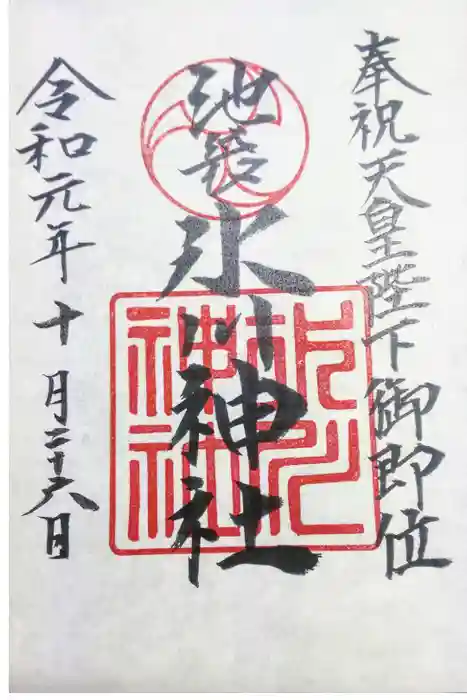 奉祝天皇陛下御即位
池袋
氷川神社
氷川
神社
令和元年十月二十六日